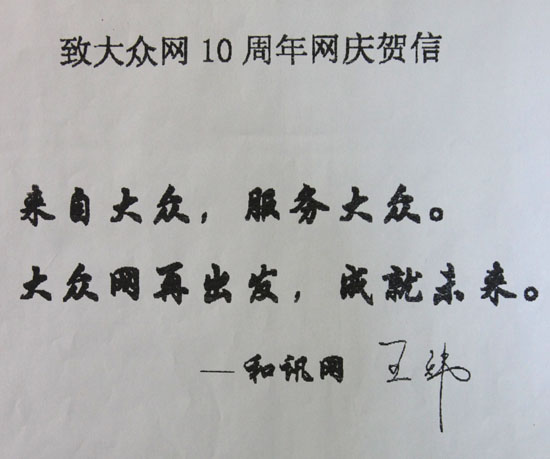 致大众网10周年网庆贺信
来自大众，服务大众。
大众网再出发，成就未来。
—和讯网 王炜